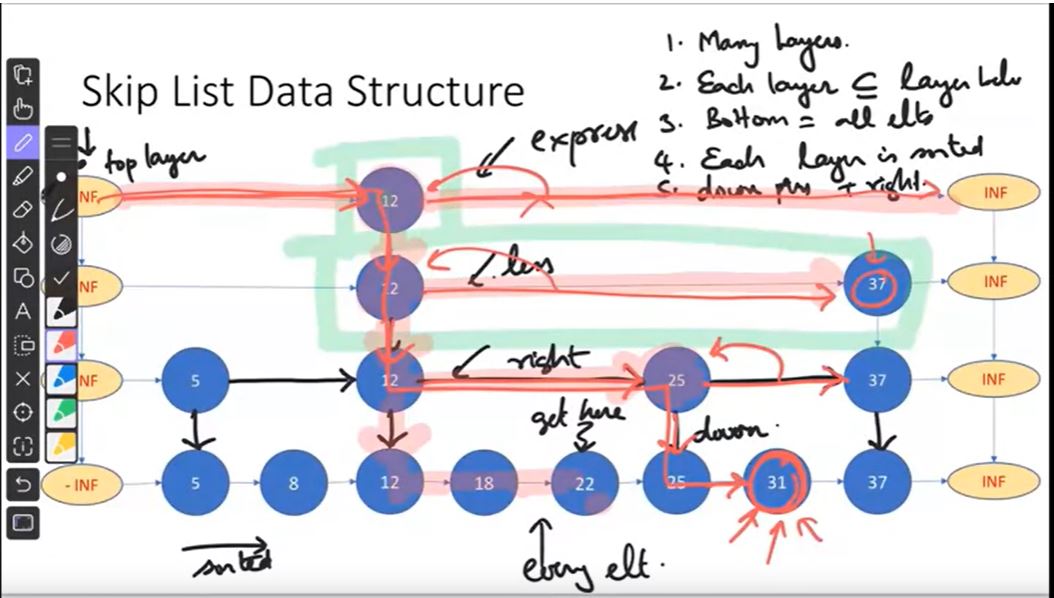 Skip List Data Structure
1. Many layers.
2. Each layer ⊆ layer below
3. Bottom = all elts
4. Each layer is sorted
5. down ptrs + right.
top layer
express
NF 12 INF
less
NF 12 37 INF
right
NF 5 12 25 37 INF
get here
down.
- INF 5 8 12 18 22 25 31 37 INF
sorted
every elt.
A